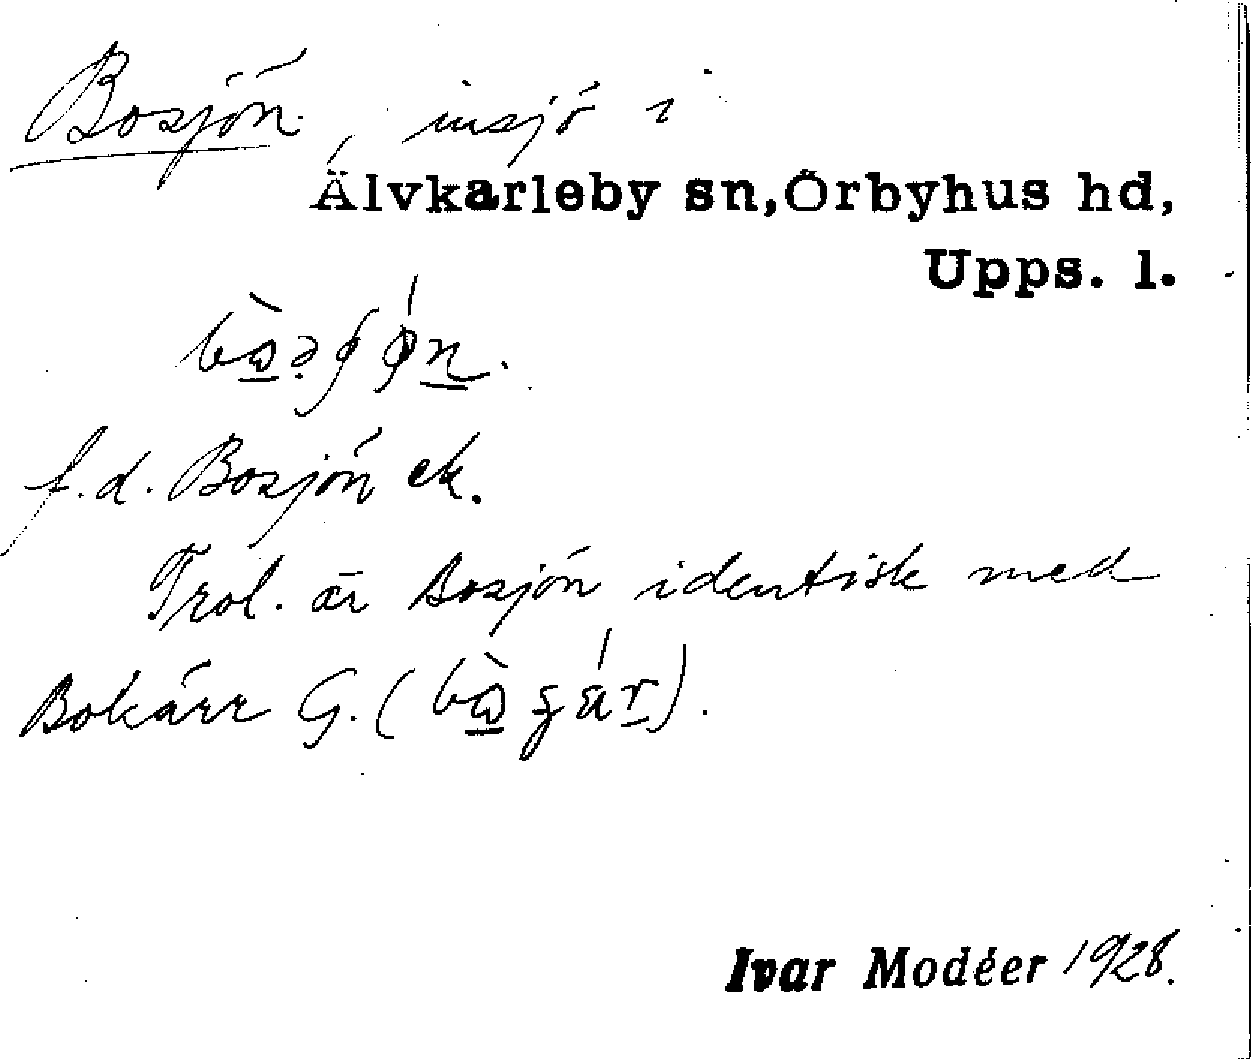 Bosjön, insjö i
Älvkarleby sn, Örbyhus hd,
Upps. l.
f.d. Bosjön ek.
Trol. är Bosjön identisk med
Bokärr G. (
Ivar Modéer 1928.